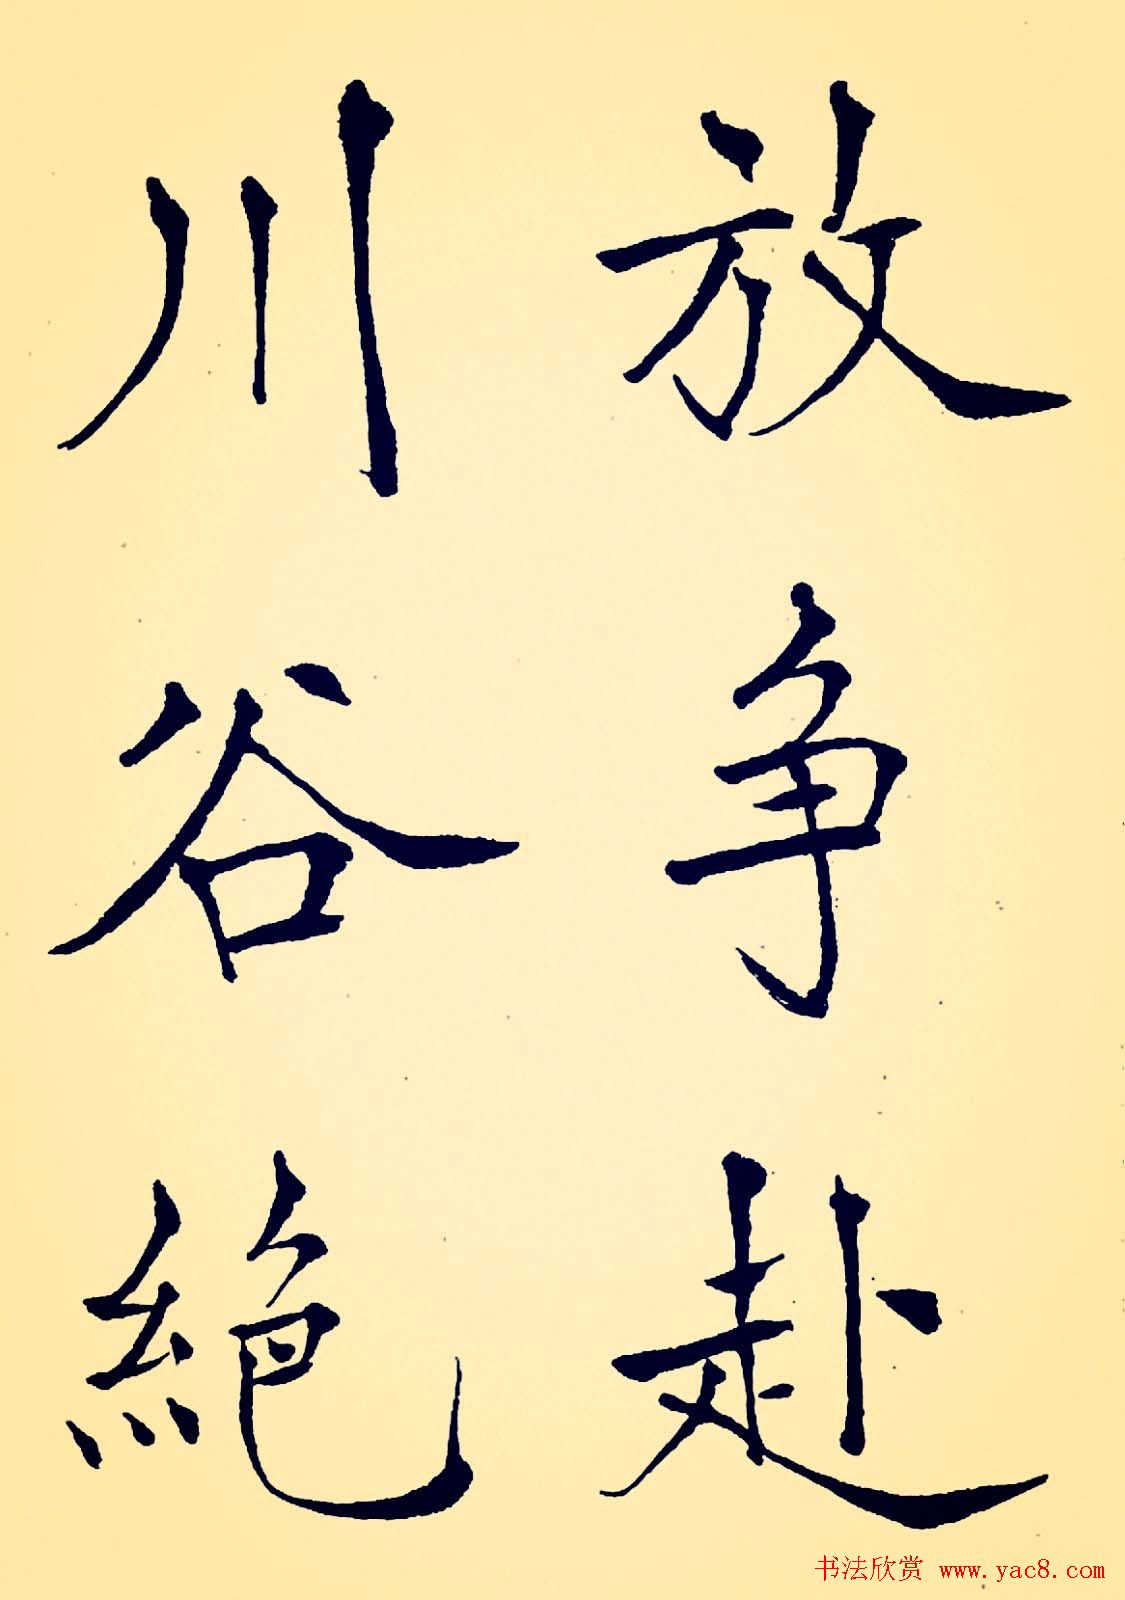 放争赴
川谷絶
书法欣赏 www.yac8.com